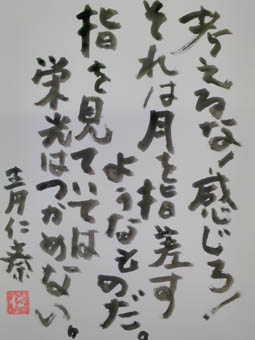 考えるな！感じろ！
それは月を指差す
ようなものだ。
指を見ていては
栄光はつかめない。